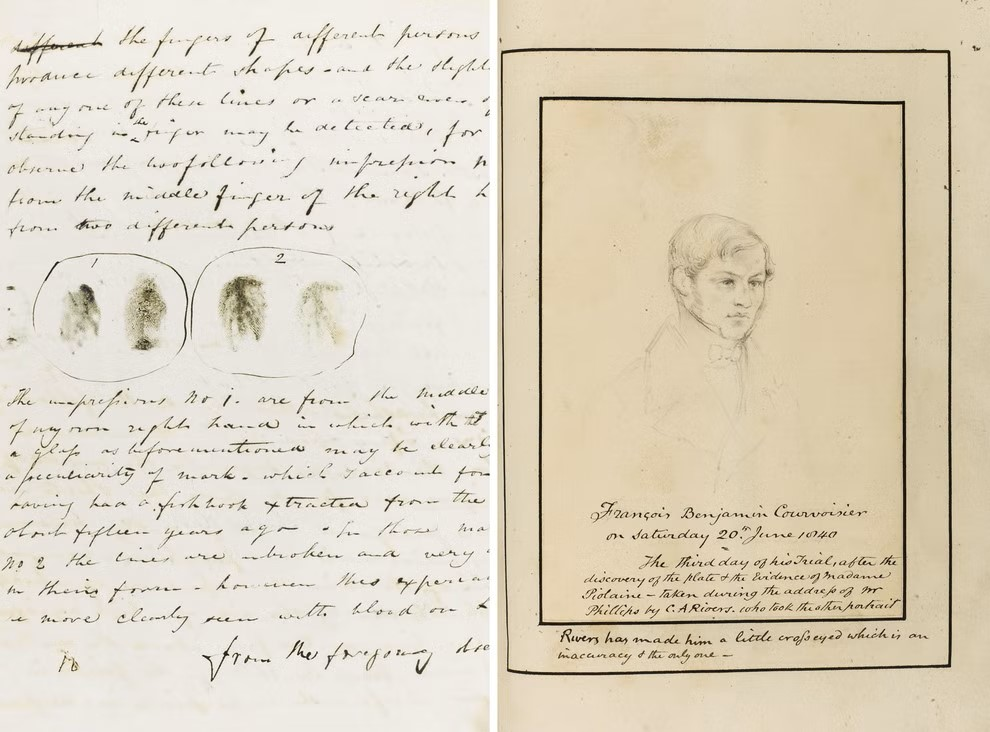 different the fingers of different persons
produce different shapes - and the slight
of any one of these lines or a scar even
standing in the finger may be detected, for
observe the two following impression
from the middle finger of the right h
from two different persons
1
2
The impressions No 1. are from the Middle
of my own right hand in which with
a glass as beforementioned may be clearly
a peculiarity of mark - which I account for
having had a fishhook extracted from the
about fifteen years ago - In those ma
No 2 the lines are unbroken and very
in their form - however this experi
move clearly seen with blood on
from the foregoing
François Benjamin Courvoisier
on Saturday 20th June 1840
The third day of his Trial, after the
discovery of the plate & the Evidence of Madame
Piolaine - taken during the address of Mr
Phillips by C. A Rivers. who took the other portrait
Rivers has made him a little cross eyed which is an
inaccuracy & the only one -